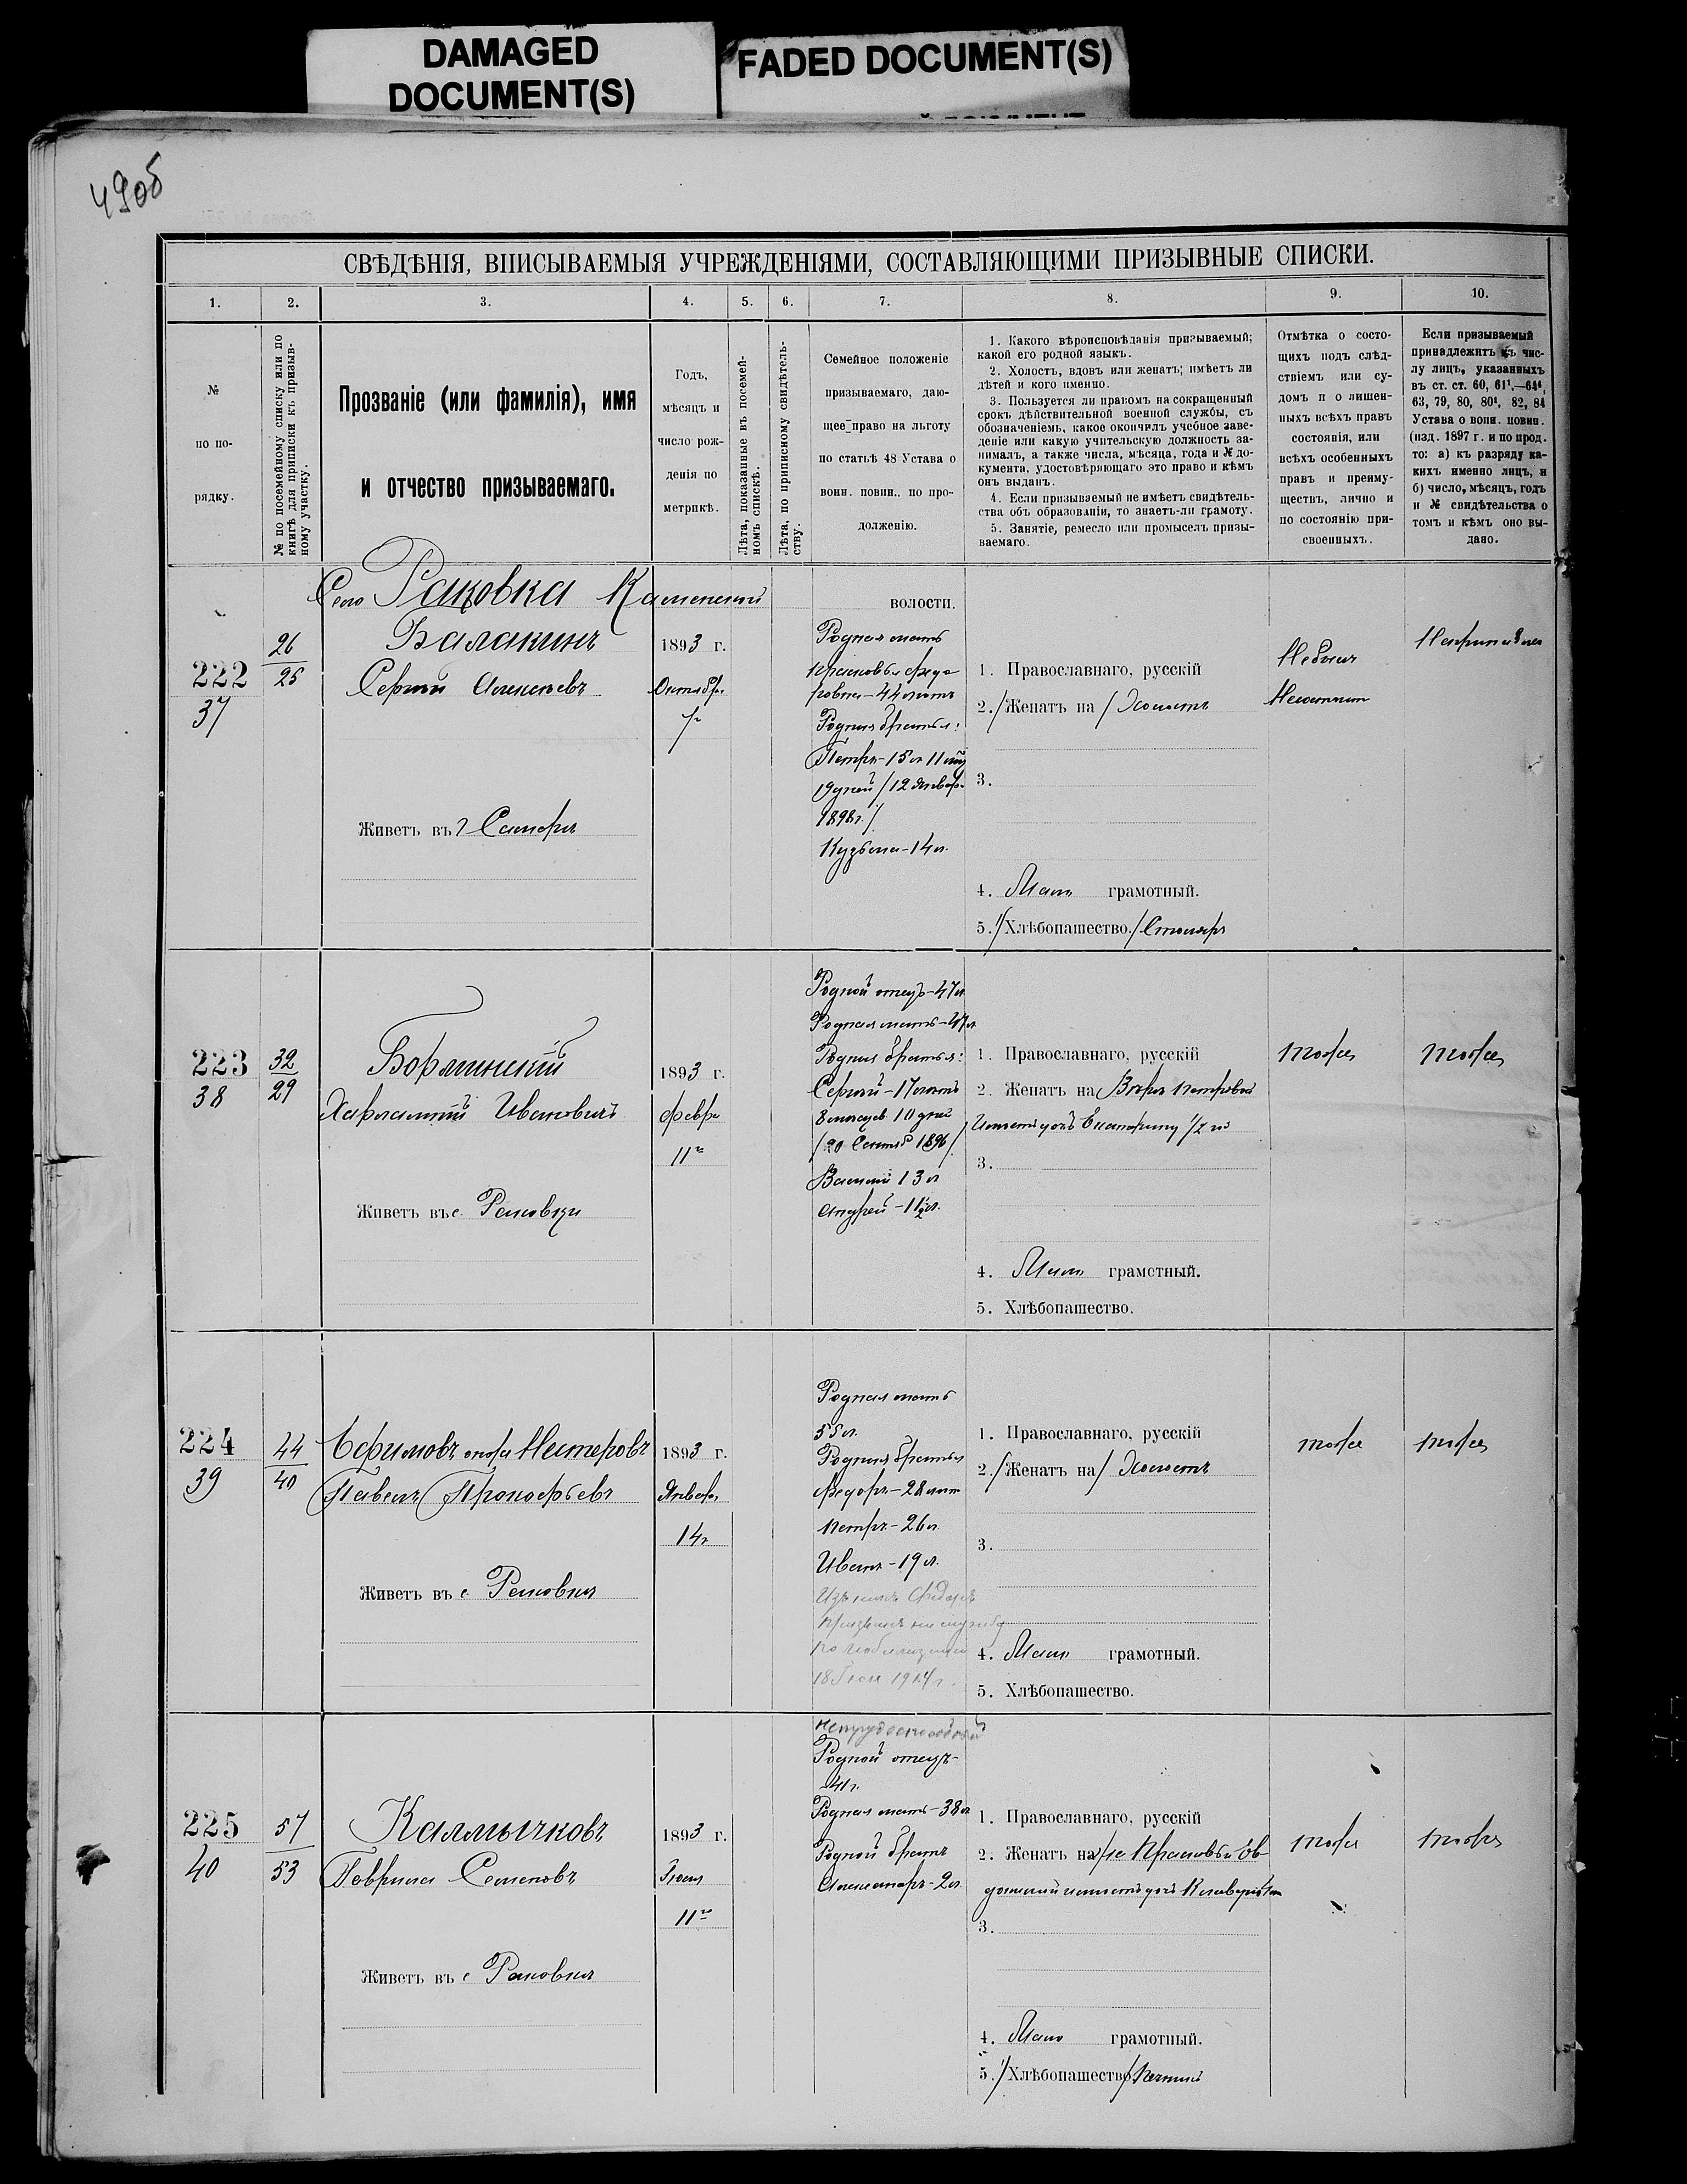 DAMAGED
DOCUMENT(S)
FADED DOCUMENT(S)
49об
СВѢДѢНІЯ, ВПИСЫВАЕМЫЯ УЧРЕЖДЕНІЯМИ, СОСТАВЛЯЮЩИМИ ПРИЗЫВНЫЕ СПИСКИ.
1.
2.
3.
4.
5.
6.
7.
8.
9.
10.
№
по по-
рядку.
№ по посемейному списку или по
книгѣ для приписки къ призыв-
ному участку.
Прозваніе (или фамилія), имя
и отчество призываемаго.
Годъ,
мѣсяцъ и
число рож-
денія по
метрикѣ.
Лѣта, показанные въ посемей-
номъ спискѣ.
Лѣта, по приписному свидѣтель-
ству.
Семейное положеніе
призываемаго, даю-
щее право на льготу
по статьѣ 48 Устава о
воин. повин., по про-
долженію.
1. Какого вѣроисповѣданія призываемый;
какой его родной языкъ.
2. Холостъ, вдовъ или женатъ; имѣетъ ли
дѣтей и кого именно.
3. Пользуется ли правомъ на сокращенный
срокъ дѣйствительной военной службы, съ
обозначеніемъ, какое окончилъ учебное заве-
деніе или какую учительскую должность за-
нималъ, а также числа, мѣсяца, года и № до-
кумента, удостовѣряющаго это право и кѣмъ
онъ выданъ.
4. Если призываемый не имѣетъ свидѣтель-
ства объ образованіи, то знаетъ-ли грамоту.
5. Занятіе, ремесло или промыселъ призы-
ваемаго.
Отмѣтка о состо-
щихъ подъ слѣд-
ствіемъ или су-
домъ и о лишен-
ныхъ всѣхъ правъ
состоянія, или
всѣхъ особенныхъ
правъ и преиму-
ществъ, лично и
по состоянію при-
своенныхъ.
Если призываемый
принадлежитъ къ чис-
лу лицъ, указанныхъ
въ ст. ст. 60, 61¹,—64⁴,
63, 79, 80, 80¹, 82, 84
Устава о воин. повин.
(изд. 1897 г. и по прод.
то: а) къ разряду ка-
кихъ именно лицъ, и
б) число, мѣсяцъ, годъ
и № свидѣтельства о
томъ и кѣмъ оно вы-
дано.
Село Раковка Каменской волости.
222
37
26
25
Балакинъ
Сергѣй Алексѣевъ
Живетъ въ г Самарѣ
1893 г.
Октябр.
Родная мать
Прасковья Ѳедо
ровна - 44 лѣтъ
Родныя братья:
Петръ - 15 л 11 мѣс
19 дней /12 Январ.
1898 г./
Кузьма - 14 л.
1. Православнаго, русскій
2. /Женатъ на/ Холостъ
3.
4. Мало грамотный.
5. /Хлѣбопашество./ Столяръ
Небылъ
Несостоит
223
38
32
29
Борминскій
Харлампій Ивановичъ
Живетъ въ с. Раковки
1893 г.
февра
11го
Родной отецъ - 47 л
Родная мать - 47 л
Родныя братья:
Сергѣй - 17 лѣтъ
8 мѣсяцев 10 дней
/20 Сентяб 1896/
Василій 13 л
Андрей - 11½ л.
1. Православнаго, русскій
2. Женатъ на Вѣрѣ Петровой
Имѣетъ дочь Екатерину ½ го
3.
4. Мало грамотный.
5. Хлѣбопашество.
тоже
тоже
224
39
44
40
Ефимовъ онже Нестеровъ
Павелъ Прокофьевъ
Живетъ въ с Раковка
1893 г.
Январ.
14г
Родная мать
55 л.
Родныя братья
Ѳедоръ - 28 лѣт
Петръ - 26 л
Иванъ - 19 л.
Изъ нихъ Ѳедоръ
призванъ на службу
по мобилизаціи
18 Іюля 1914 г.
1. Православнаго, русскій
2. /Женатъ на/ Холостъ
3.
4. Мало грамотный.
5. Хлѣбопашество.
тоже
тоже
225
40
57
53
Калмычковъ
Гаврила Семеновъ
Живетъ въ с Раковка
1893 г.
Іюля
11го
нетрудоспособный
Родной отецъ -
-41 г.
Родная мать - 38 л
Родной братъ
Александръ - 2 л.
1. Православнаго, русскій
2. Женатъ на Прасковьи Ев
докимой имѣетъ дочь Клавдію
3.
4. Мало грамотный.
5. /Хлѣбопашество/ Печник
тоже
тоже